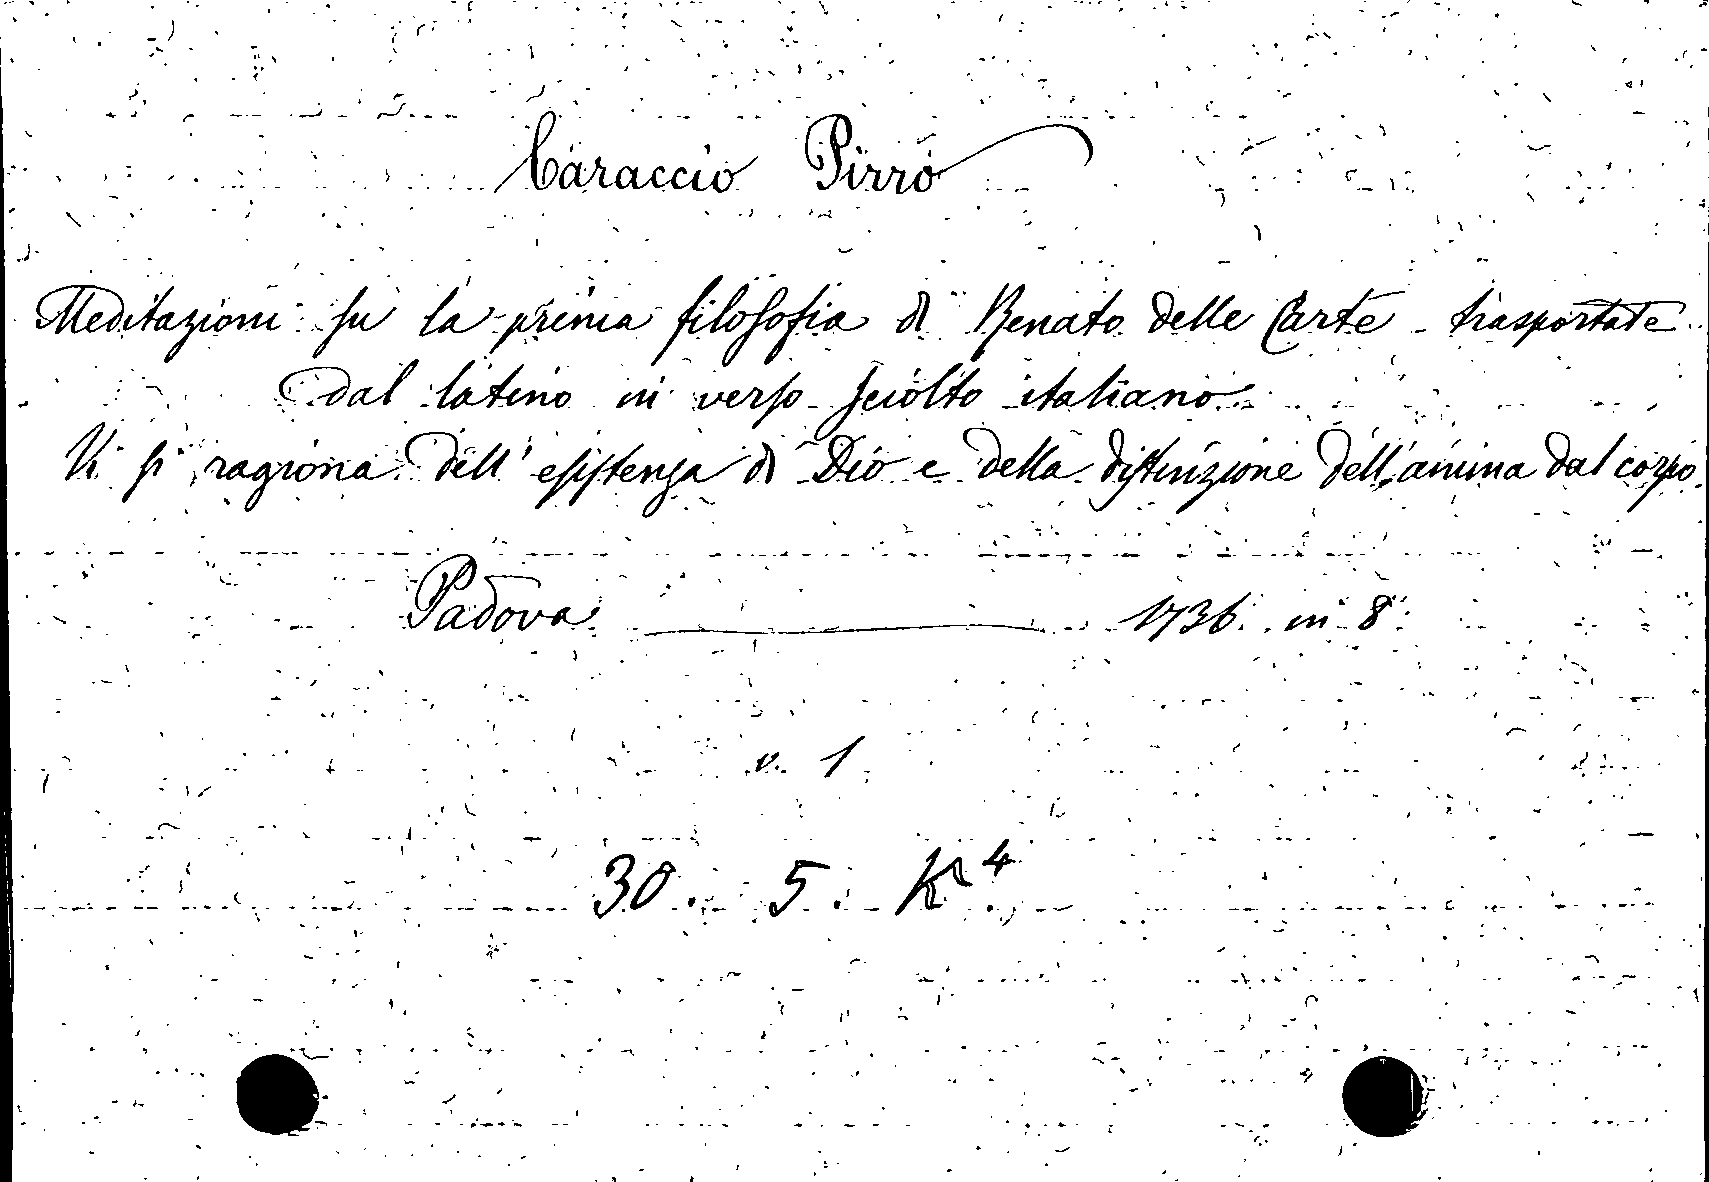 Caraccio Pirro
Meditazioni su la prima filosofia di Renato delle Carte trasportate
dal latino in verso sciolto italiano
Vi si ragiona dell'esistenza di Dio e della distinzione dell'anima dal corpo.
Padova ——— 1736. in 8°.
v. 1
30. 5. K⁴